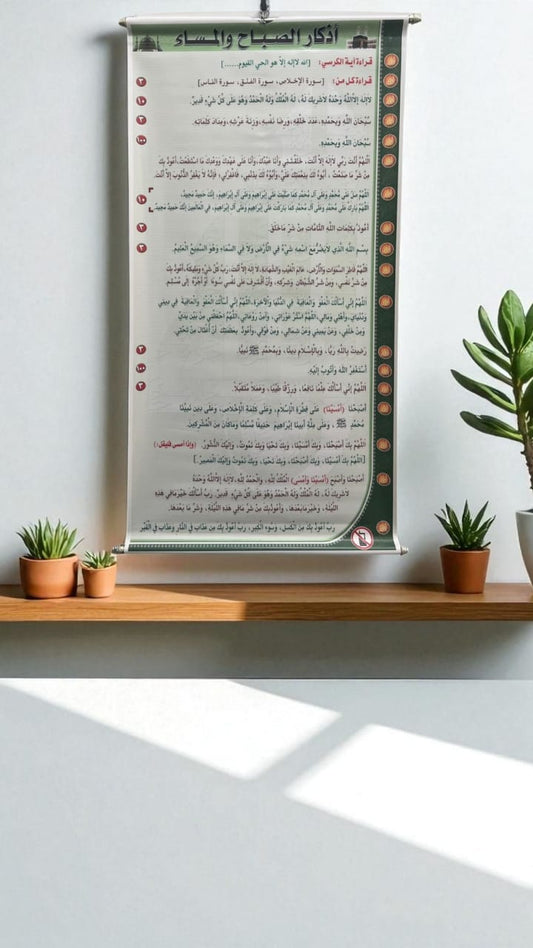 أذكار الصباح والمساء
قراءة آية الكرسي: [الله لا إله إلا هو الحي القيوم......]
قراءة كل من: [سورة الإخلاص، سورة الفلق، سورة الناس] ٣
لا إله إلا الله وحده لا شريك له، له الملك وله الحمد وهو على كل شيء قدير. ١٠
سبحان الله وبحمده، عدد خلقه، ورضا نفسه، وزنة عرشه، ومداد كلماته. ٣
سبحان الله وبحمده. ١٠٠
اللهم أنت ربي لا إله إلا أنت، خلقتني وأنا عبدك، وأنا على عهدك ووعدك ما استطعت، أعوذ بك
من شر ما صنعت، أبوء لك بنعمتك علي، وأبوء لك بذنبي، فاغفر لي، فإنه لا يغفر الذنوب إلا أنت.
اللهم صل على محمد وعلى آل محمد كما صليت على إبراهيم وعلى آل إبراهيم، إنك حميد مجيد، ١٠
اللهم بارك على محمد وعلى آل محمد كما باركت على إبراهيم وعلى آل إبراهيم، في العالمين إنك حميد مجيد.
أعوذ بكلمات الله التامات من شر ما خلق. ٣
بسم الله الذي لا يضر مع اسمه شيء في الأرض ولا في السماء وهو السميع العليم. ٣
اللهم فاطر السموات والأرض، عالم الغيب والشهادة، لا إله إلا أنت، رب كل شيء ومليكه، أعوذ بك
من شر نفسي، ومن شر الشيطان وشركه، وأن أقترف على نفسي سوءا أو أجره إلى مسلم.
اللهم إني أسألك العفو والعافية في الدنيا والآخرة، اللهم إني أسألك العفو والعافية في ديني
ودنياي، وأهلي ومالي، اللهم استر عوراتي، وآمن روعاتي، اللهم احفظني من بين يدي
ومن خلفي، وعن يميني وعن شمالي، ومن فوقي، وأعوذ بعظمتك أن أغتال من تحتي.
رضيت بالله ربا، وبالإسلام دينا، وبمحمد ﷺ نبيا. ٣
أستغفر الله وأتوب إليه. ١٠٠
اللهم إني أسألك علما نافعا، ورزقا طيبا، وعملا متقبلا. ٣
أصبحنا (أمسينا) على فطرة الإسلام، وعلى كلمة الإخلاص، وعلى دين نبينا
محمد ﷺ، وعلى ملة أبينا إبراهيم حنيفا مسلما وما كان من المشركين.
اللهم بك أصبحنا، وبك أمسينا، وبك نحيا وبك نموت، وإليك النشور. (وإذا أمسى فليقل:)
[اللهم بك أمسينا، وبك أصبحنا، وبك نحيا، وبك نموت وإليك المصير]
أصبحنا وأصبح (أمسينا وأمسى) الملك لله، والحمد لله، لا إله إلا الله وحده
لا شريك له، له الملك وله الحمد وهو على كل شيء قدير. رب أسألك خير ما في هذه
الليلة، وخير ما بعدها، وأعوذ بك من شر ما في هذه الليلة، وشر ما بعدها،
رب أعوذ بك من الكسل، وسوء الكبر، رب أعوذ بك من عذاب في النار وعذاب في القبر